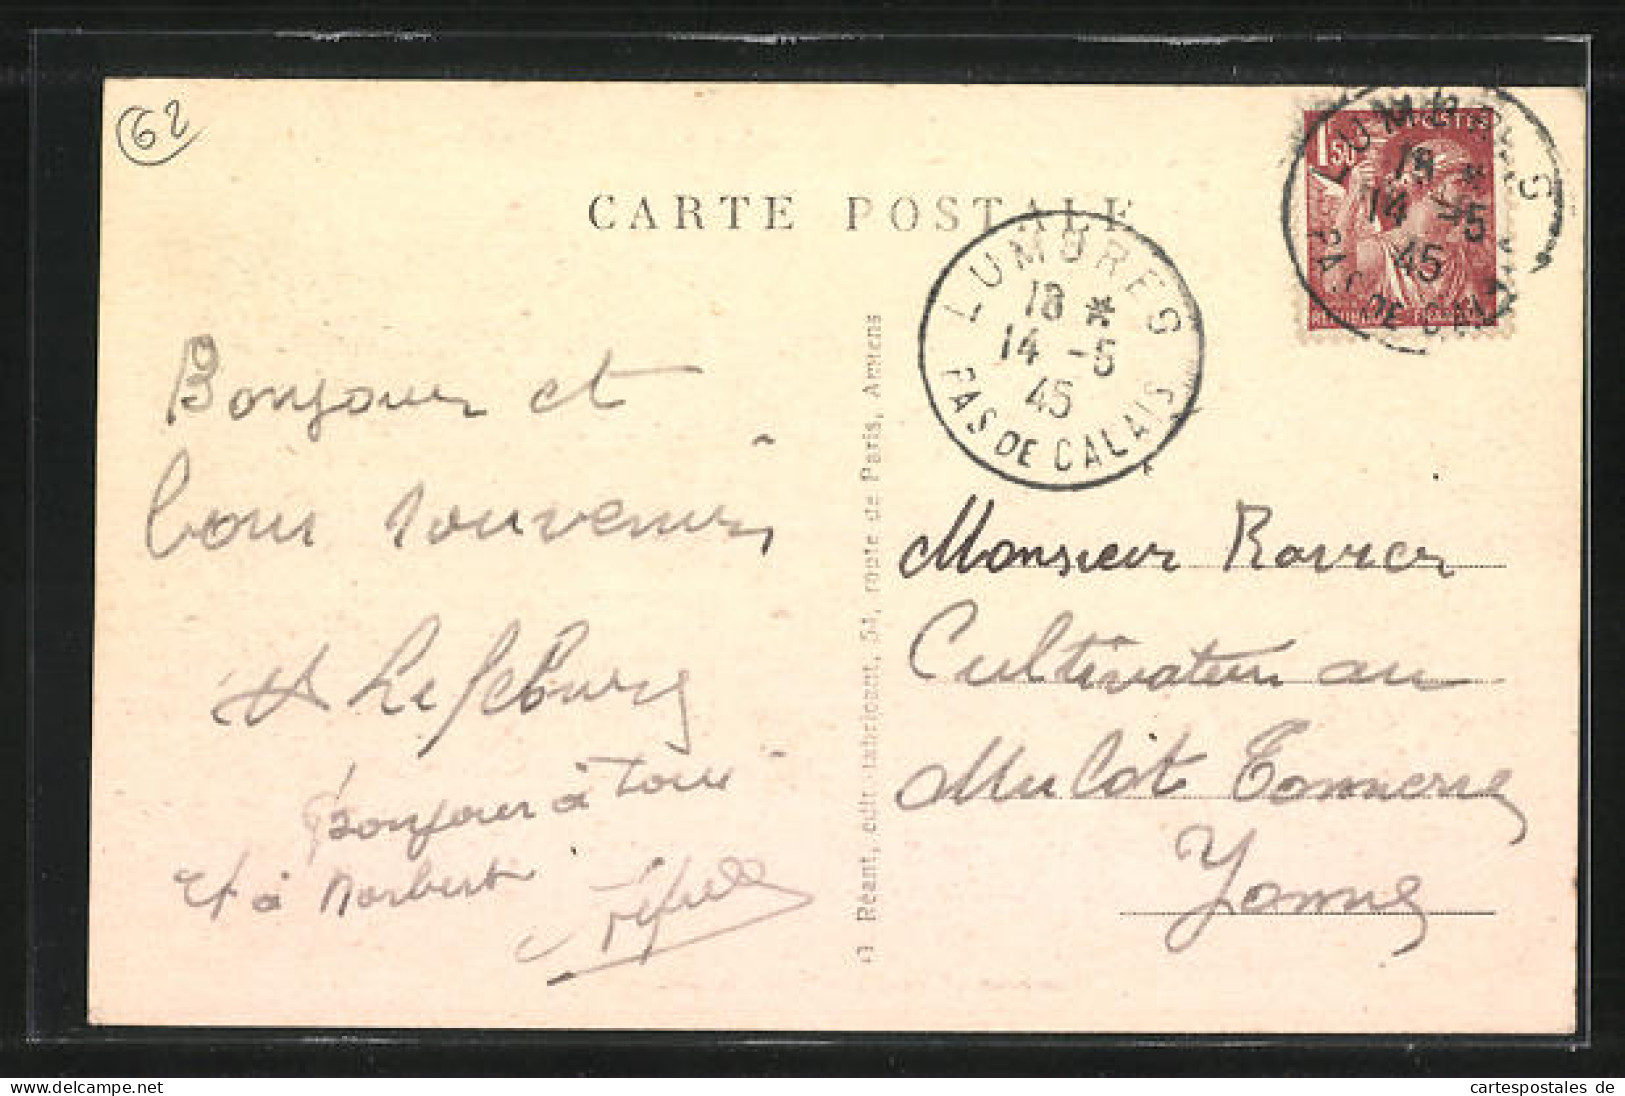 62
CARTE POSTALE
1F50
POSTES
LUMBRES
18 *
14 -5
45
PAS DE CALAIS
LUMBRES
18 *
14 -5
45
PAS DE CALAIS
Bonjour et
bons souvenirs
Lefebvre
Bonjour à tous
et à Norbert
Réant, édit.-fabricant, 54, route de Paris, Amiens
Monsieur
Cultivateur au
Mulot Tonnerre
Yonne
cartespostales de